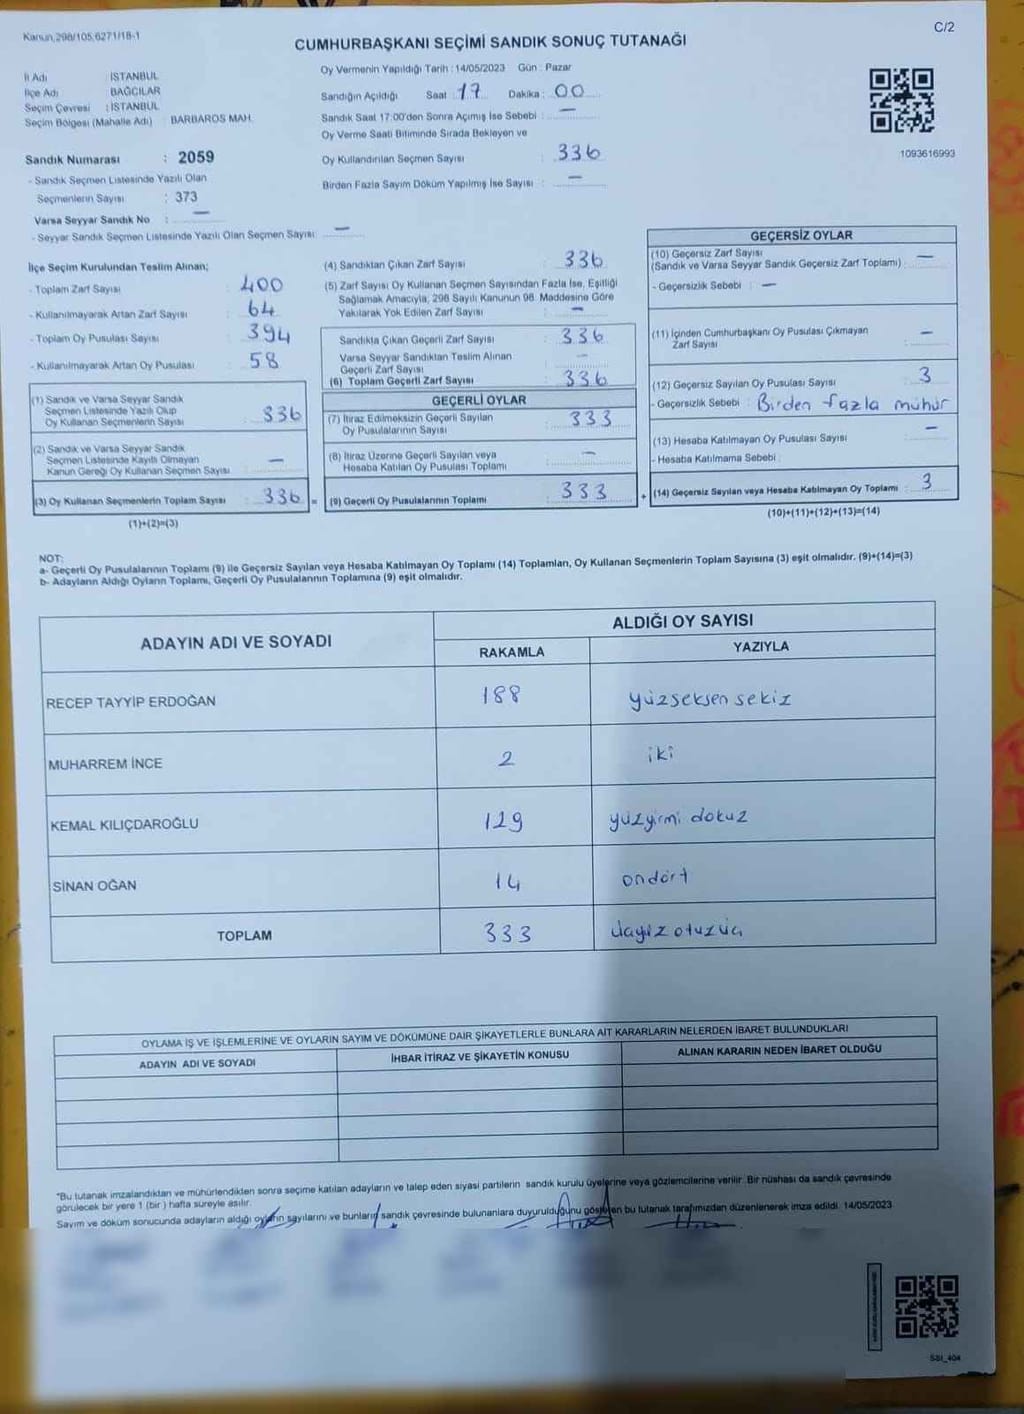 Kanun,298/105,6271/18-1
C/2
CUMHURBAŞKANI SEÇİMİ SANDIK SONUÇ TUTANAĞI
İl Adı : İSTANBUL
İlçe Adı : BAĞCILAR
Seçim Çevresi : İSTANBUL
Seçim Bölgesi (Mahalle Adı) : BARBAROS MAH.
Oy Vermenin Yapıldığı Tarih : 14/05/2023 Gün : Pazar
Sandığın Açıldığı Saat : 17 Dakika : 00
Sandık Saat 17:00'den Sonra Açımış İse Sebebi : —
Oy Verme Saati Bitiminde Sırada Bekleyen ve
Oy Kullandırılan Seçmen Sayısı : 336
Birden Fazla Sayım Döküm Yapılmış İse Sayısı : —
1093616993
Sandık Numarası : 2059
- Sandık Seçmen Listesinde Yazılı Olan
Seçmenlerin Sayısı : 373
Varsa Seyyar Sandık No : —
- Seyyar Sandık Seçmen Listesinde Yazılı Olan Seçmen Sayısı: —
İlçe Seçim Kurulundan Teslim Alınan;
- Toplam Zarf Sayısı : 400
- Kullanılmayarak Artan Zarf Sayısı : 64
- Toplam Oy Pusulası Sayısı : 394
- Kullanılmayarak Artan Oy Pusulası : 58
(1) Sandık ve Varsa Seyyar Sandık
Seçmen Listesinde Yazılı Olup
Oy Kullanan Seçmenlerin Sayısı : 336
(2) Sandık ve Varsa Seyyar Sandık
Seçmen Listesinde Kayıtlı Olmayan
Kanun Gereği Oy Kullanan Seçmen Sayısı : —
(3) Oy Kullanan Seçmenlerin Toplam Sayısı : 336 =
(1)+(2)=(3)
(4) Sandıktan Çıkan Zarf Sayısı : 336
(5) Zarf Sayısı Oy Kullanan Seçmen Sayısından Fazla İse, Eşitliği
Sağlamak Amacıyla, 298 Sayılı Kanunun 98. Maddesine Göre
Yakılarak Yok Edilen Zarf Sayısı : —
Sandıkta Çıkan Geçerli Zarf Sayısı : 336
Varsa Seyyar Sandıktan Teslim Alınan
Geçerli Zarf Sayısı : —
(6) Toplam Geçerli Zarf Sayısı : 336
GEÇERLİ OYLAR
(7) İtiraz Edilmeksizin Geçerli Sayılan
Oy Pusulalarının Sayısı : 333
(8) İtiraz Üzerine Geçerli Sayılan veya
Hesaba Katılan Oy Pusulası Toplamı : —
(9) Geçerli Oy Pusulalarının Toplamı : 333 +
GEÇERSİZ OYLAR
(10) Geçersiz Zarf Sayısı
(Sandık ve Varsa Seyyar Sandık Geçersiz Zarf Toplamı) : —
- Geçersizlik Sebebi : —
(11) İçinden Cumhurbaşkanı Oy Pusulası Çıkmayan
Zarf Sayısı : —
(12) Geçersiz Sayılan Oy Pusulası Sayısı : 3
- Geçersizlik Sebebi : Birden fazla mühür
(13) Hesaba Katılmayan Oy Pusulası Sayısı : —
- Hesaba Katılmama Sebebi :
(14) Geçersiz Sayılan veya Hesaba Katılmayan Oy Toplamı : 3
(10)+(11)+(12)+(13)=(14)
NOT:
a- Geçerli Oy Pusulalarının Toplamı (9) ile Geçersiz Sayılan veya Hesaba Katılmayan Oy Toplamı (14) Toplamları, Oy Kullanan Seçmenlerin Toplam Sayısına (3) eşit olmalıdır. (9)+(14)=(3)
b- Adayların Aldığı Oyların Toplamı, Geçerli Oy Pusulalarının Toplamına (9) eşit olmalıdır.
ADAYIN ADI VE SOYADI
ALDIĞI OY SAYISI
RAKAMLA YAZIYLA
RECEP TAYYİP ERDOĞAN 188 yüzseksen sekiz
MUHARREM İNCE 2 iki
KEMAL KILIÇDAROĞLU 129 yüzyirmi dokuz
SİNAN OĞAN 14 ondört
TOPLAM 333 üçyüz otuzüç
OYLAMA İŞ VE İŞLEMLERİNE VE OYLARIN SAYIM VE DÖKÜMÜNE DAİR ŞİKAYETLERLE BUNLARA AİT KARARLARIN NELERDEN İBARET BULUNDUKLARI
ADAYIN ADI VE SOYADI İHBAR İTİRAZ VE ŞİKAYETİN KONUSU ALINAN KARARIN NEDEN İBARET OLDUĞU
*Bu tutanak imzalandıktan ve mühürlendikten sonra seçime katılan adayların ve talep eden siyasi partilerin sandık kurulu üyelerine veya gözlemcilerine verilir. Bir nüshası da sandık çevresinde
görülecek bir yere 1 (bir ) hafta süreyle asılır.
Sayım ve döküm sonucunda adayların aldığı oyların sayılarını ve bunların sandık çevresinde bulunanlara duyurulduğunu gösteren bu tutanak tarafımızdan düzenlenerek imza edildi. 14/05/2023
SSI_404